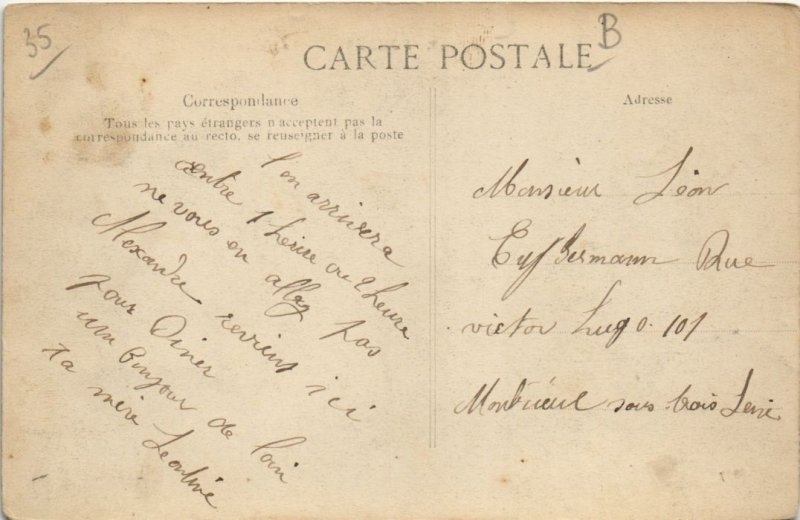 35
B
CARTE POSTALE
Correspondance
Tous les pays étrangers n'acceptent pas la
correspondance au recto, se renseigner à la poste
l'on arrivera
entre 1 heure ou 2 heure
ne vous en allez pas
Alexandre revient ici
pour Diner
um Bonjour de loin
ta mère Leontine
Adresse
Monsieur Léon
Rue
victor hugo 101
Montreuil sous bois Seine